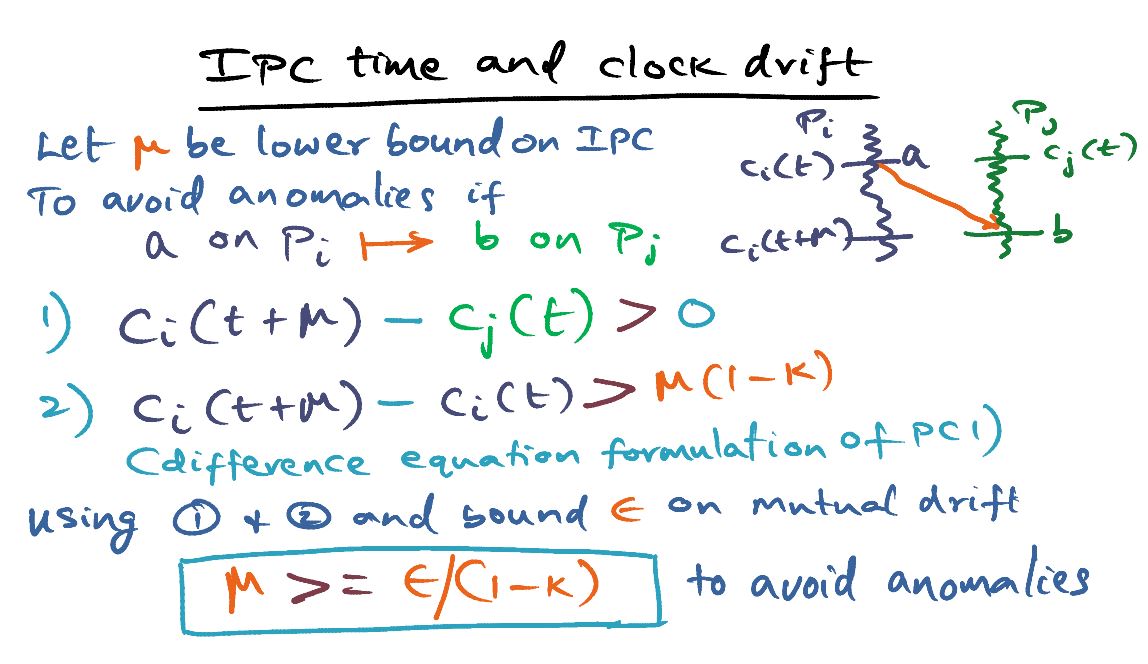 IPC time and clock drift
Let μ be lower bound on IPC
To avoid anomalies if
a on Pi ↦ b on Pj
Pi
Pj
Ci(t)
a
Cj(t)
Ci(t+μ)
b
1) Ci(t+μ) - Cj(t) > 0
2) Ci(t+μ) - Ci(t) > μ(1-K)
(difference equation formulation of PC1)
using ① + ② and bound ∈ on mutual drift
μ >= ∈/(1-K) to avoid anomalies